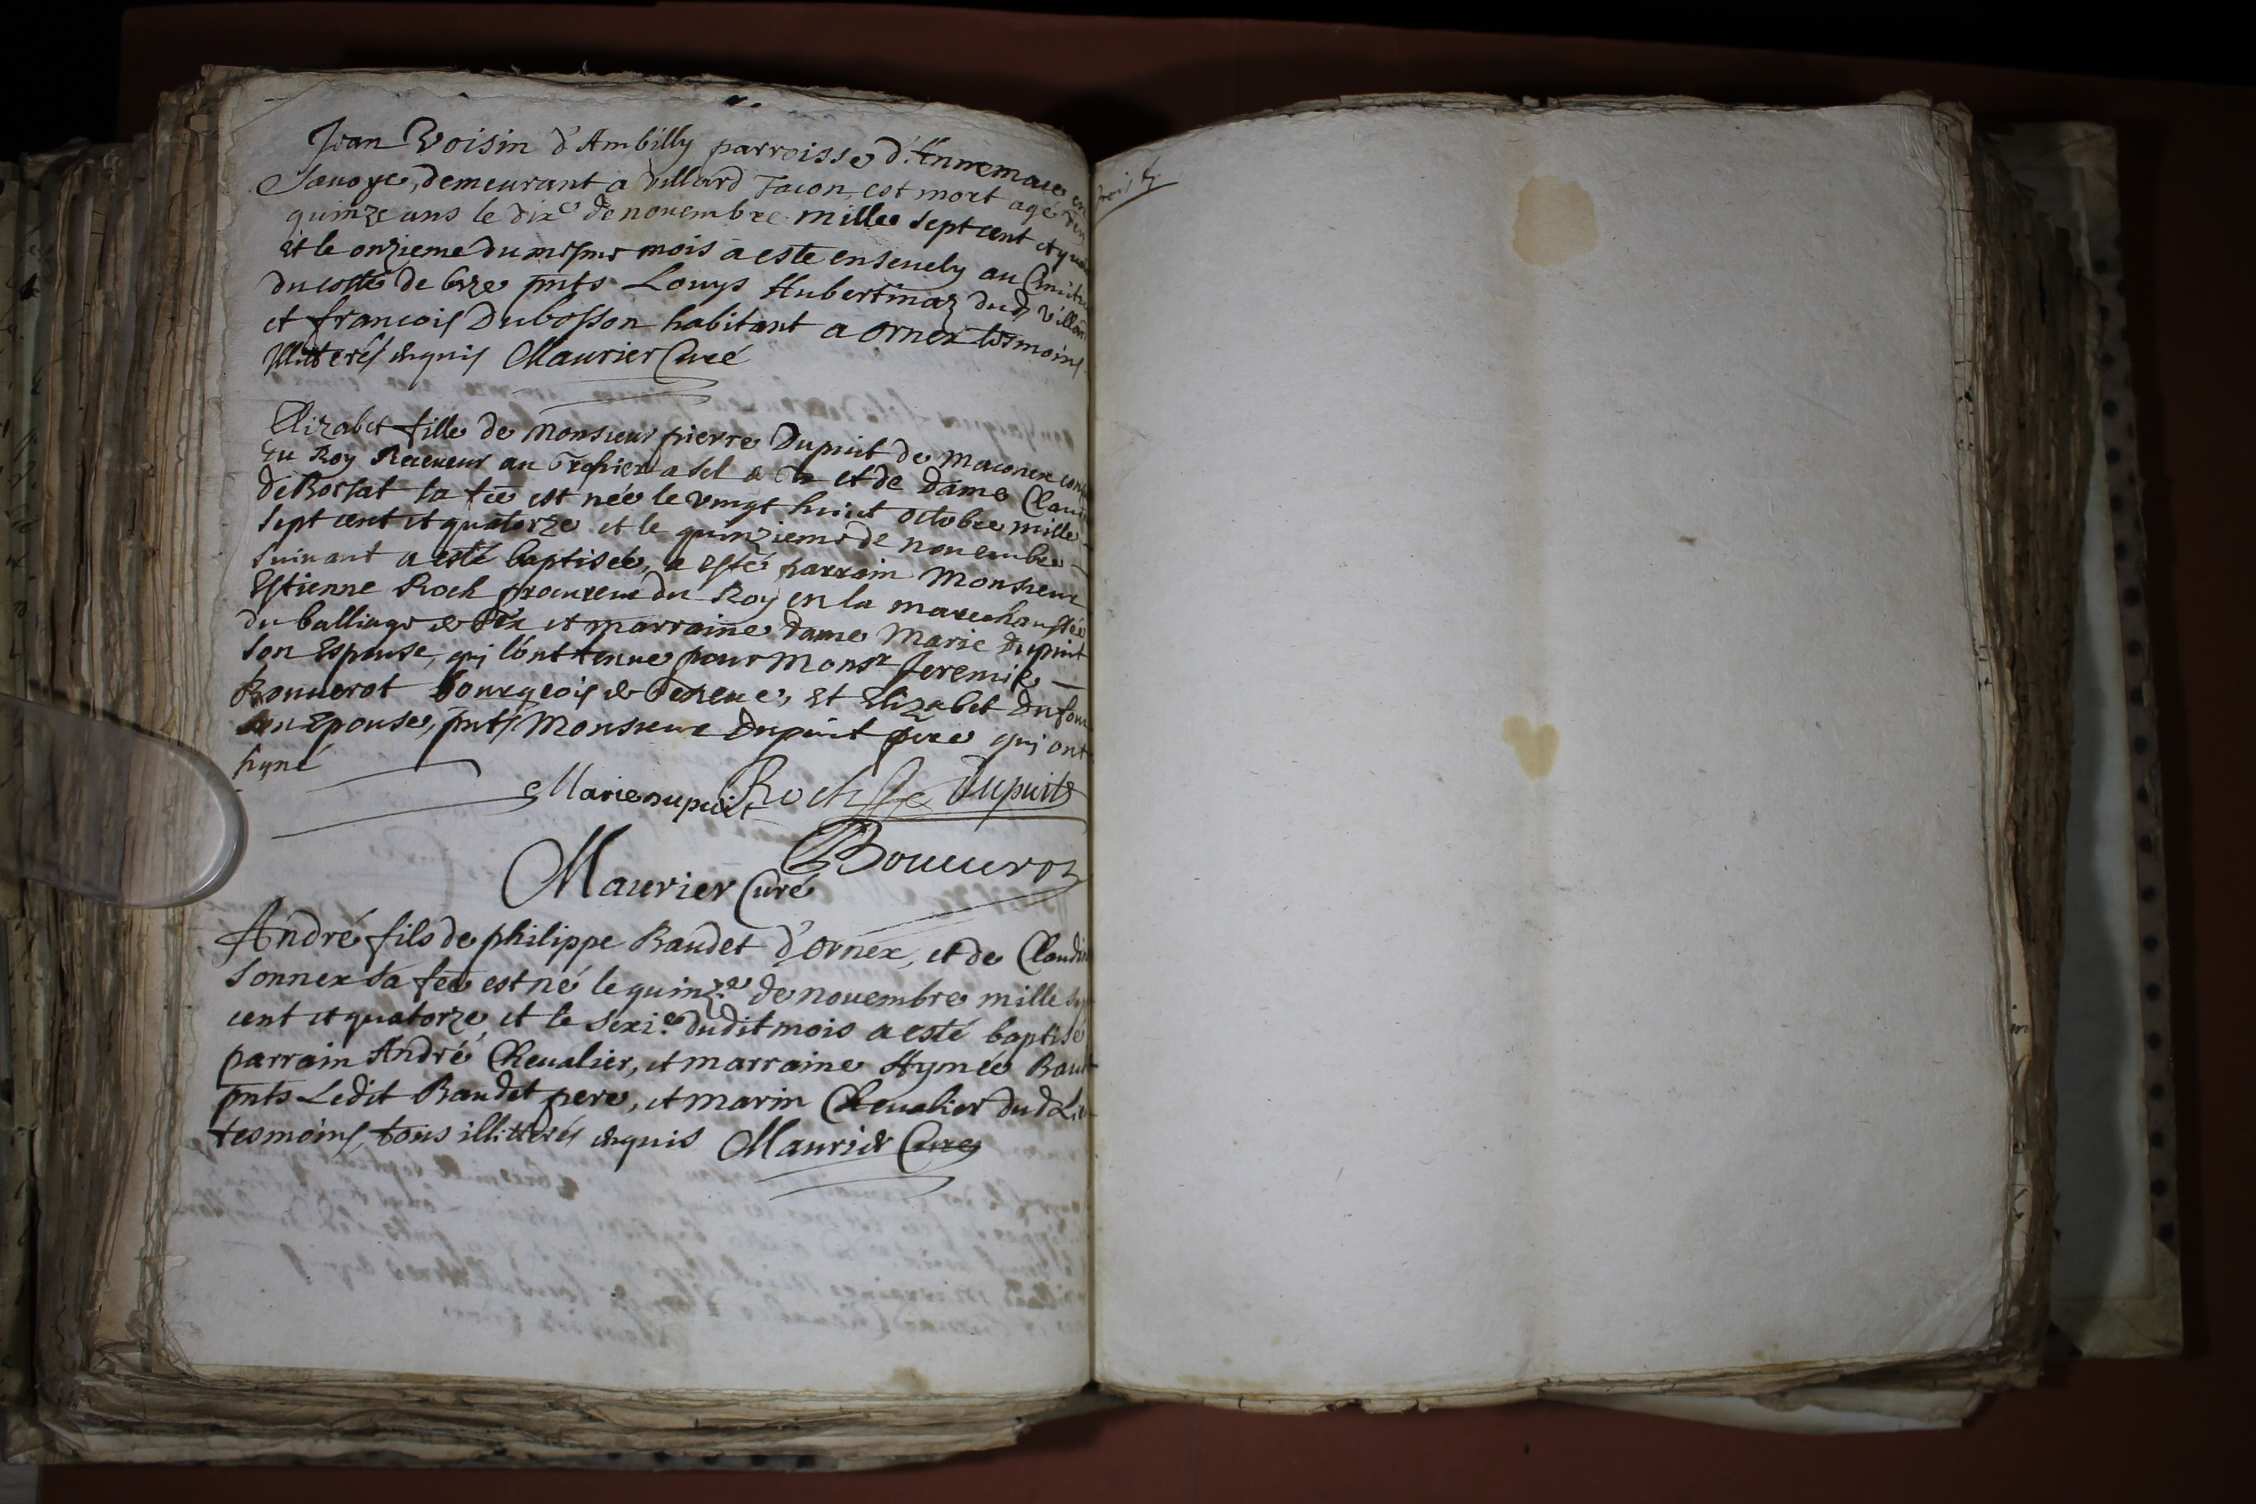 Jean Voisin d'Ambilly parroisse d'Annemace en
Sauoye, demeurant a Villard Tacon, est mort agé
quinze ans le dix.e de nouembre mille sept cent et
Et le onzieme du mesme mois a este enseuely au
du costé de bize pnts Louys Hubertinaz dud
et francois Dubosson habitant a ornex tesmoins
illitterés enquis Maurier Curé
Elizabet fille de Monsieur pierre Dupuit de Maconex
du Roy Receueur au Grenier a sel de et de Dame
de Rossat sa fē est née le vingt huict octobre mille
sept cent et quatorze et le quinzieme de nouembre
suiuant a esté baptisée, a esté parrain Monsieur
Estienne Roch procureur du Roy en la marechaussée
du balliage de Gex et marraine Dame Marie Dupuit
son Espouse, qui l'ont tenue pour Monsr Jeremie
Bouuerot bourgeois de Geneue, et Elizabet
son Epouse, pnts Monsieur Dupuit pere qui ont
signé
Marie dupuit Roch Dupuits
Bouuerot
Maurier Curé
André fils de philippe Baudet d'ornex, et de
sonnex sa fē est né le quinz.e de nouembre mille
cent et quatorze et le sezi.e dudit mois a esté baptisé
parrain André Cheualier, et marraine Aymée
pnts Ledit Baudet pere, et marin Cheualier dud
tesmoins, tous illitterés enquis Maurier Curé